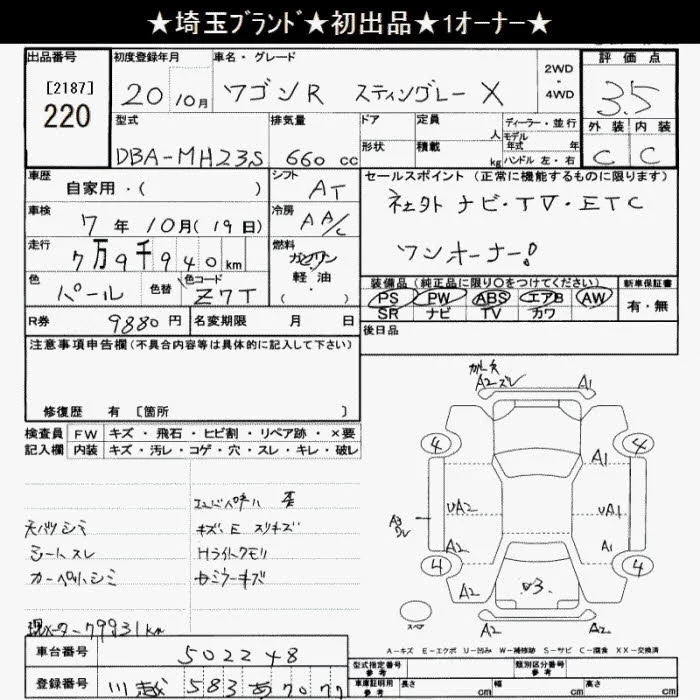 ★埼玉ﾌﾞﾗﾝﾄﾞ★初出品★1オーナー★
出品番号
[2187]
220
初度登録年月
20 10月
車名・グレード
ワゴンR スティングレー X
2WD
・
4WD
評価点
3.5
外装 内装
C C
型式
DBA-MH23S
排気量
660 cc
ドア
形状
定員
人
積載
kg
ディーラー・並行
モデル年式 年
ハンドル 左・右
車歴
自家用・( )
シフト
AT
セールスポイント (正常に機能するものに限ります)
社外 ナビ・TV・ETC
ワンオーナー!
車検
7年10月(19日)
冷房
AA/C
走行
7万9千940km
燃料
ガソリン
軽油
( )
色
パール
色替
色コード
Z7T
装備品 (純正品に限り〇をつけてください)
PS PW ABS エアB AW
SR ナビ TV カワ
新車保証書
有・無
R券 9880円
名変期限 月 日
後日品
注意事項申告欄(不具合内容等は具体的に記入して下さい)
修復歴 有 〔箇所 〕
検査員記入欄
FW キズ・飛石・ヒビ割・リペア跡・×要
内装 キズ・汚レ・コゲ・穴・スレ・キレ・破レ
天バリシミ
シートスレ
カーペットシミ
キズ、E スリキズ
Hライトクモリ
現メーター79931km
A2 ズレ A1
4 4
A1
UA2 UA1
A2 A1
4 4
A2 A2
A2 A2
スペア
A-キズ E-エクボ U-凹み W-補修跡 S-サビ C-腐食 XX-交換済
車台番号
502248
登録番号
川越 583 あ 7077
型式指定番号
参考
類別区分番号
参考
車庫証明用
参考
長さ cm
幅 cm
高さ cm